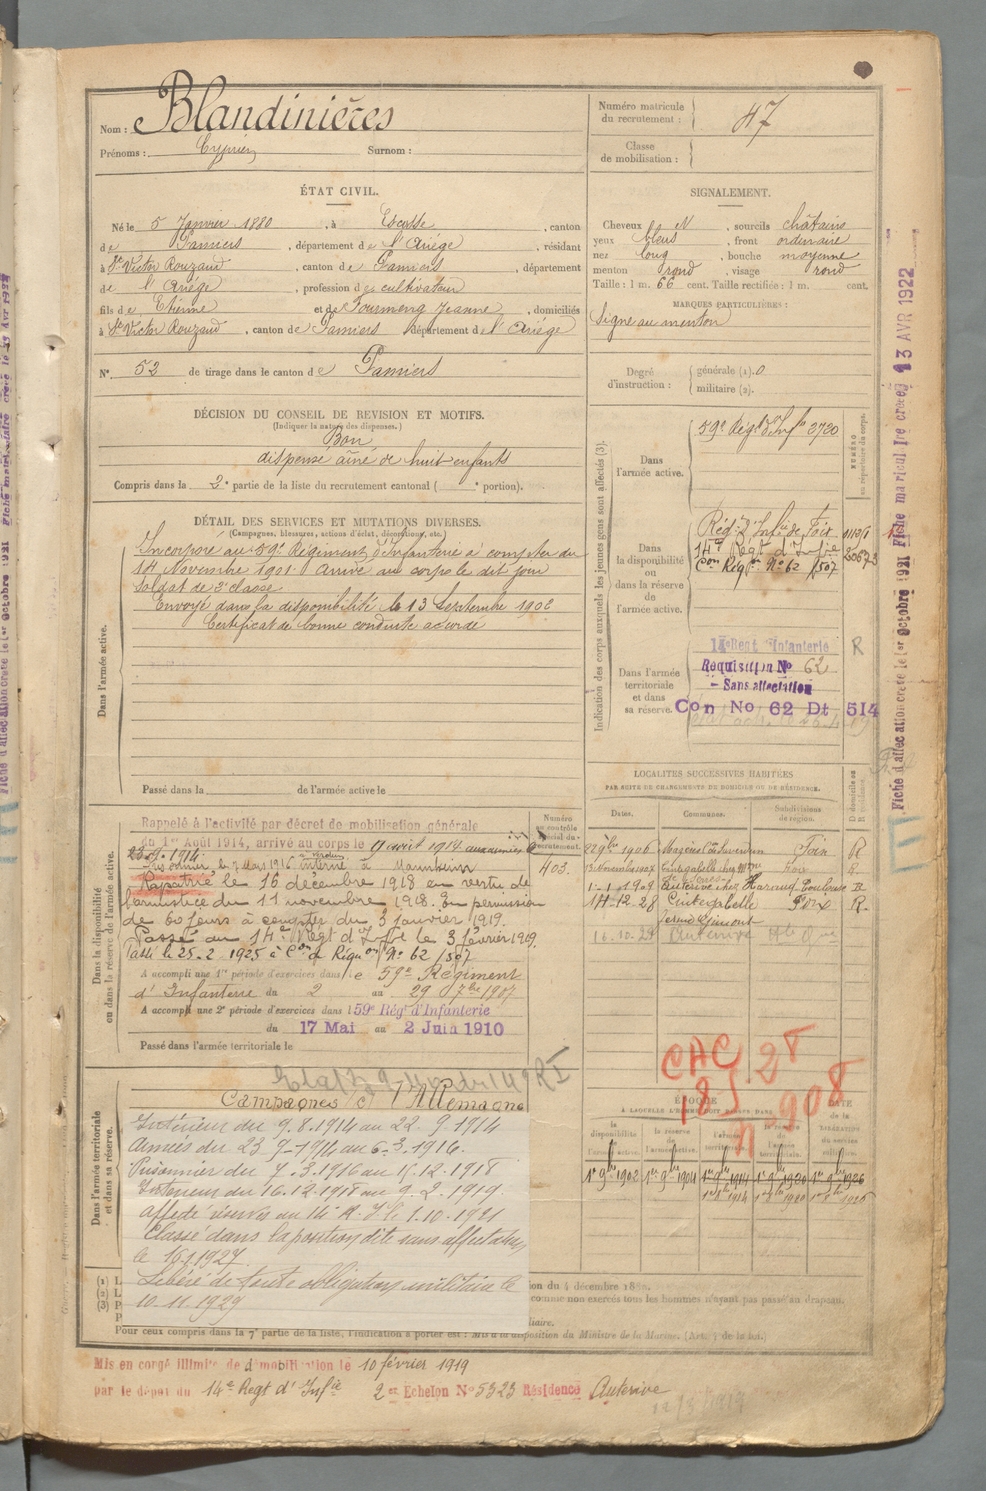 Nom : Blandinières
Prénoms : Cyprien Surnom :
Numéro matricule du recrutement : 47
Classe de mobilisation :
ÉTAT CIVIL.
Né le 5 Janvier 1880, à Escosse, canton
de Pamiers, département de l'Ariège, résidant
à St Victor Rouzaud, canton de Pamiers, département
de l'Ariège, profession de cultivateur
fils de Etienne et de Fourmeng Jeanne, domiciliés
à St Victor Rouzaud, canton de Pamiers département de l'Ariège
N° 52 de tirage dans le canton de Pamiers
SIGNALEMENT.
Cheveux N, sourcils châtains
yeux bleus, front ordinaire
nez long, bouche moyenne
menton rond, visage rond
Taille : 1 m. 66 cent. Taille rectifiée : 1 m. cent.
MARQUES PARTICULIÈRES :
Signe au menton
Degré d'instruction : générale (1). 0
militaire (2).
DÉCISION DU CONSEIL DE REVISION ET MOTIFS.
(Indiquer la nature des dispenses.)
Bon
dispensé aîné de huit enfants
Compris dans la 2e partie de la liste du recrutement cantonal ( e portion).
DÉTAIL DES SERVICES ET MUTATIONS DIVERSES.
(Campagnes, blessures, actions d'éclat, décorations, etc.)
Dans l'armée active.
Incorporé au 59e Régiment d'Infanterie à compter du
14 Novembre 1901. Arrivé au corps le dit jour
soldat de 2e classe
Envoyé dans la disponibilité le 13 Septembre 1902
Certificat de bonne conduite accordé
Passé dans la de l'armée active le
Indication des corps auxquels les jeunes gens sont affectés (3).
NUMÉRO au répertoire du corps.
Dans l'armée active.
59e Régt d'Infie 3720
Dans la disponibilité ou dans la réserve de l'armée active.
Régt d'Infie de Foix
14e Régt d'Infie
Con Réqon No 62 /507
Dans l'armée territoriale et dans sa réserve.
14e Regt Infanterie R
Réquisition No 62
- Sans affectation
Con No 62 Dt 514
Dans la disponibilité ou dans la réserve de l'armée active.
Rappelé à l'activité par décret de mobilisation générale
du 1er Août 1914, arrivé au corps le 9 août 1914 aux armées le
23.9.1914.
Prisonnier le 7 Mars 1916 interné à Mannheim
Rapatrié le 16 décembre 1918 en vertu de
l'armistice du 11 novembre 1918. En permission
de 60 jours à compter du 3 janvier 1919.
Passé au 14e Régt d'Infie le 3 février 1919.
Passé le 25-2 1925 à Con de Réquon No 62 /507
A accompli une 1re période d'exercices dans le 59e Régiment
d'Infanterie du 2 au 29 7bre 1907
A accompli une 2e période d'exercices dans le 59e Régt d'Infanterie
du 17 Mai au 2 Juin 1910
Passé dans l'armée territoriale le
Numéro au contrôle spécial du recrutement.
403.
LOCALITÉS SUCCESSIVES HABITÉES
PAR SUITE DE CHANGEMENTS DE DOMICILE OU DE RÉSIDENCE.
Dates. Communes. Subdivisions de région. Domicile ou Résidence.
22 9bre 1906 Foix R
13 novembre 1907 Cintegabelle Foix R
1-1-1909 Auterive chez Toulouse R
14.12.28 Cintegabelle Foix R.
16.10.29 Auterive
CAC 28
18 J. 908
ÉPOQUE
À LAQUELLE L'HOMME DOIT PASSER DANS
la disponibilité de l'armée active. la réserve de l'armée active. l'armée territoriale. la réserve de l'armée territoriale. DATE de la LIBÉRATION du service militaire.
1er 9bre 1902 1er 9bre 1904 1er 9bre 1914 1er 9bre 1920 1er 9bre 1926
Dans l'armée territoriale et dans sa réserve.
Campagnes c/ l'Allemagne
Intérieur du 9.8.1914 au 22.9.1914
Armées du 23 9-1914 au 6-3.1916.
Prisonnier du 7.3.1916 au 15.12.1918
Intérieur du 16.12.1918 au 9.2.1919.
affecté réserves au 14e R.I le 1.10.1921
Classé dans la position dite sans affectation
le 16 1 1927.
Libéré de toute obligation militaire le
10-11-1929
(1) L
(2) L
(3) P
P
comme non exercés tous les hommes n'ayant pas passé au drapeau.
Pour ceux compris dans la 7e partie de la liste, l'indication à porter est : Mis à la disposition du Ministre de la Marine. (Art. de la loi.)
Mis en congé illimité de démobilisation le 10 février 1919
par le dépôt du 14e Regt d'Infie 2er Echelon No 5323 Résidence Auterive
Fiche d'affectation créée le 1er Octobre 1921 Fiche matriculaire créée 13 AVR 1922